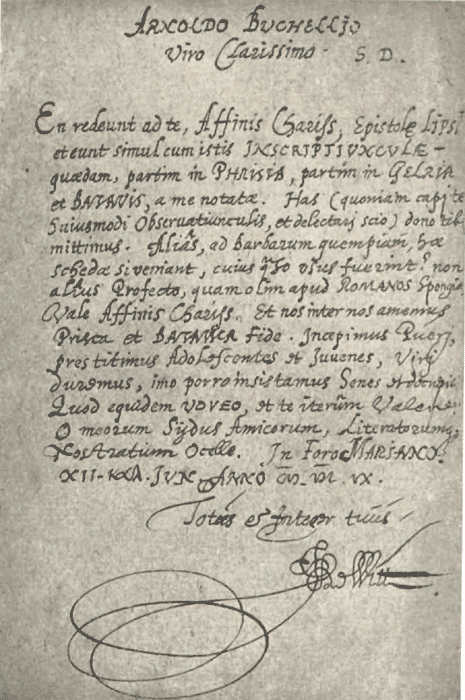 ARNOLDO BUCHELLIO
Viro Clarissimo · S. D.
En redeunt ad te, Affinis Chariss, Epistolę LIPSI
et eunt simul cum istis INSCRIPTIUNCULÆ –
quædam, partim in PHRISIA, partim in GELRIA
et BATAVIS, a me notatæ. Has (quoniam capi te
huiusmodi Observatiunculis, et delectari scio) dono tibi
mittimus. Aliàs, ad Barbarum quempiam, hæ
schedæ si veniant, cuius usus fuerint? non
alius Profecto, quam olim apud ROMANOS Spongia
Vale Affinis Chariss. Et nos inter nos amemus
Prisca et BATAVICA fide. Incepimus Pueri,
prestitimus Adolescentes et Juvenes, Viri
duremus, imo porro insistamus Senes et
Quod equidem VOVEO, et te iterùm Valere
O meorum Sydus Amicorum, Literatorumq;
Nostratium Ocelle. In Foro MARIANO.
XII · KXA · JUN · ANNO
Totus et Integer tuus
de Witt